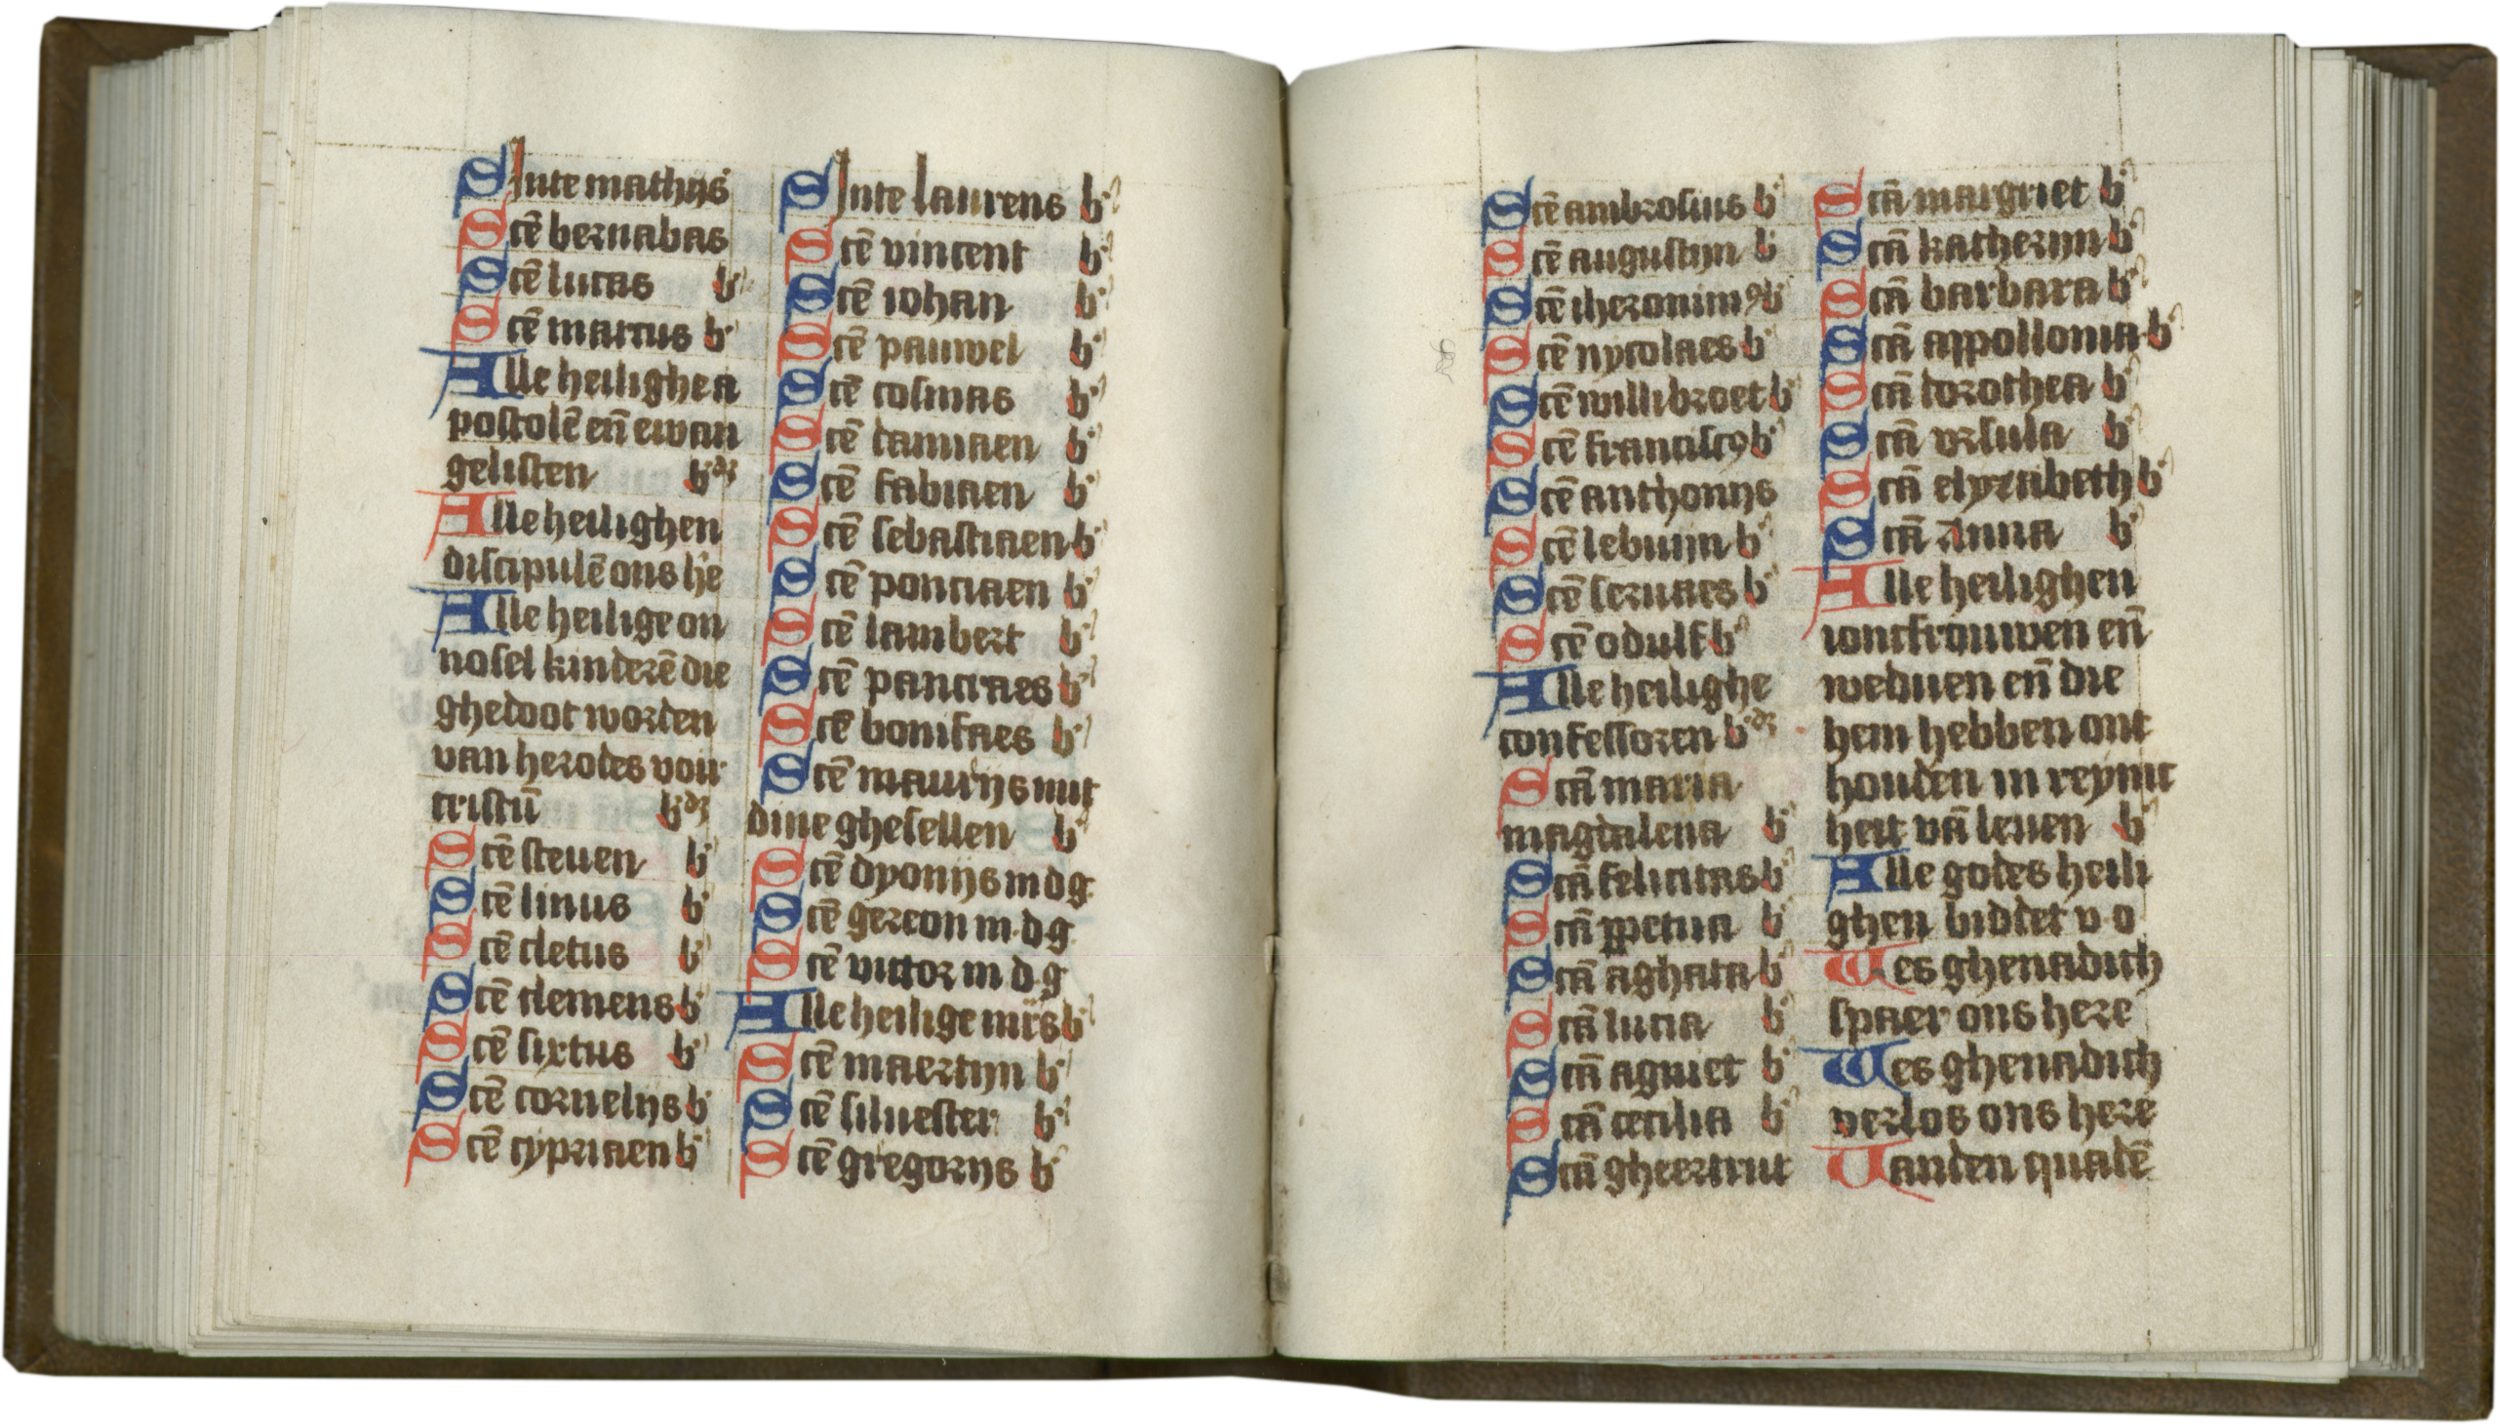 Sinte mathijs
Scē bernabas
Scē lucas b
Scē marcus b
Alle heilighe a
postolē eñ ewan
gelisten bdʒ
Alle heilighen
discipulē ons he
Alle heilige on
nosel kinderē die
ghedoot worden
van herodes voir
cristū bdʒ
Scē steuen b
Scē linus b
Scē cletus b
Scē clemens b
Scē sixtus b
Scē cornelijs b
Scē cypriaen b
Sinte laurens b
Scē vincent b
Scē iohan b
Scē pauwel b
Scē cosmas b
Scē damiaen b
Scē fabiaen b
Scē sebastiaen b
Scē ponciaen b
Scē lambert b
Scē pancraes b
Scē bonifaes b
Scē maurijs mit
dine ghesellen b
Scē dyonijs m d g
Scē gereon m d g
Scē victor m d g
Alle heilige mr̄s b
Scē maertijn b
Scē siluester b
Scē gregorijs b
Scē ambrosius b
Scē augustijn b
Scē iheronimꝰ b
Scē nycolaes b
Scē willibroet b
Scē franciscꝰ b
Scē anthonijs
Scē lebuijn b
Scē seruaes b
Scē odulf b
Alle heilighe
confessoren bdʒ
Scā maria
magdalena b
Scā felicitas b
Scā ꝑpetua b
Scā aghata b
Scā lucia b
Scā agniet b
Scā cecilia b
Scā gheertrut
Scā margriet b
Scā katherijn b
Scā barbara b
Scā appollonia b
Scā dorothea b
Scā vrsula b
Scā elyzabeth b
Scā Anna b
Alle heilighen
ioncfrouwen eñ
weduen eñ die
hem hebben ont
houden in reynic
heit vā leuen b
Alle godes heili
ghen biddet v o
Wes ghenadich
spaer ons here
Wes ghenadich
verlos ons here
Vanden quadē